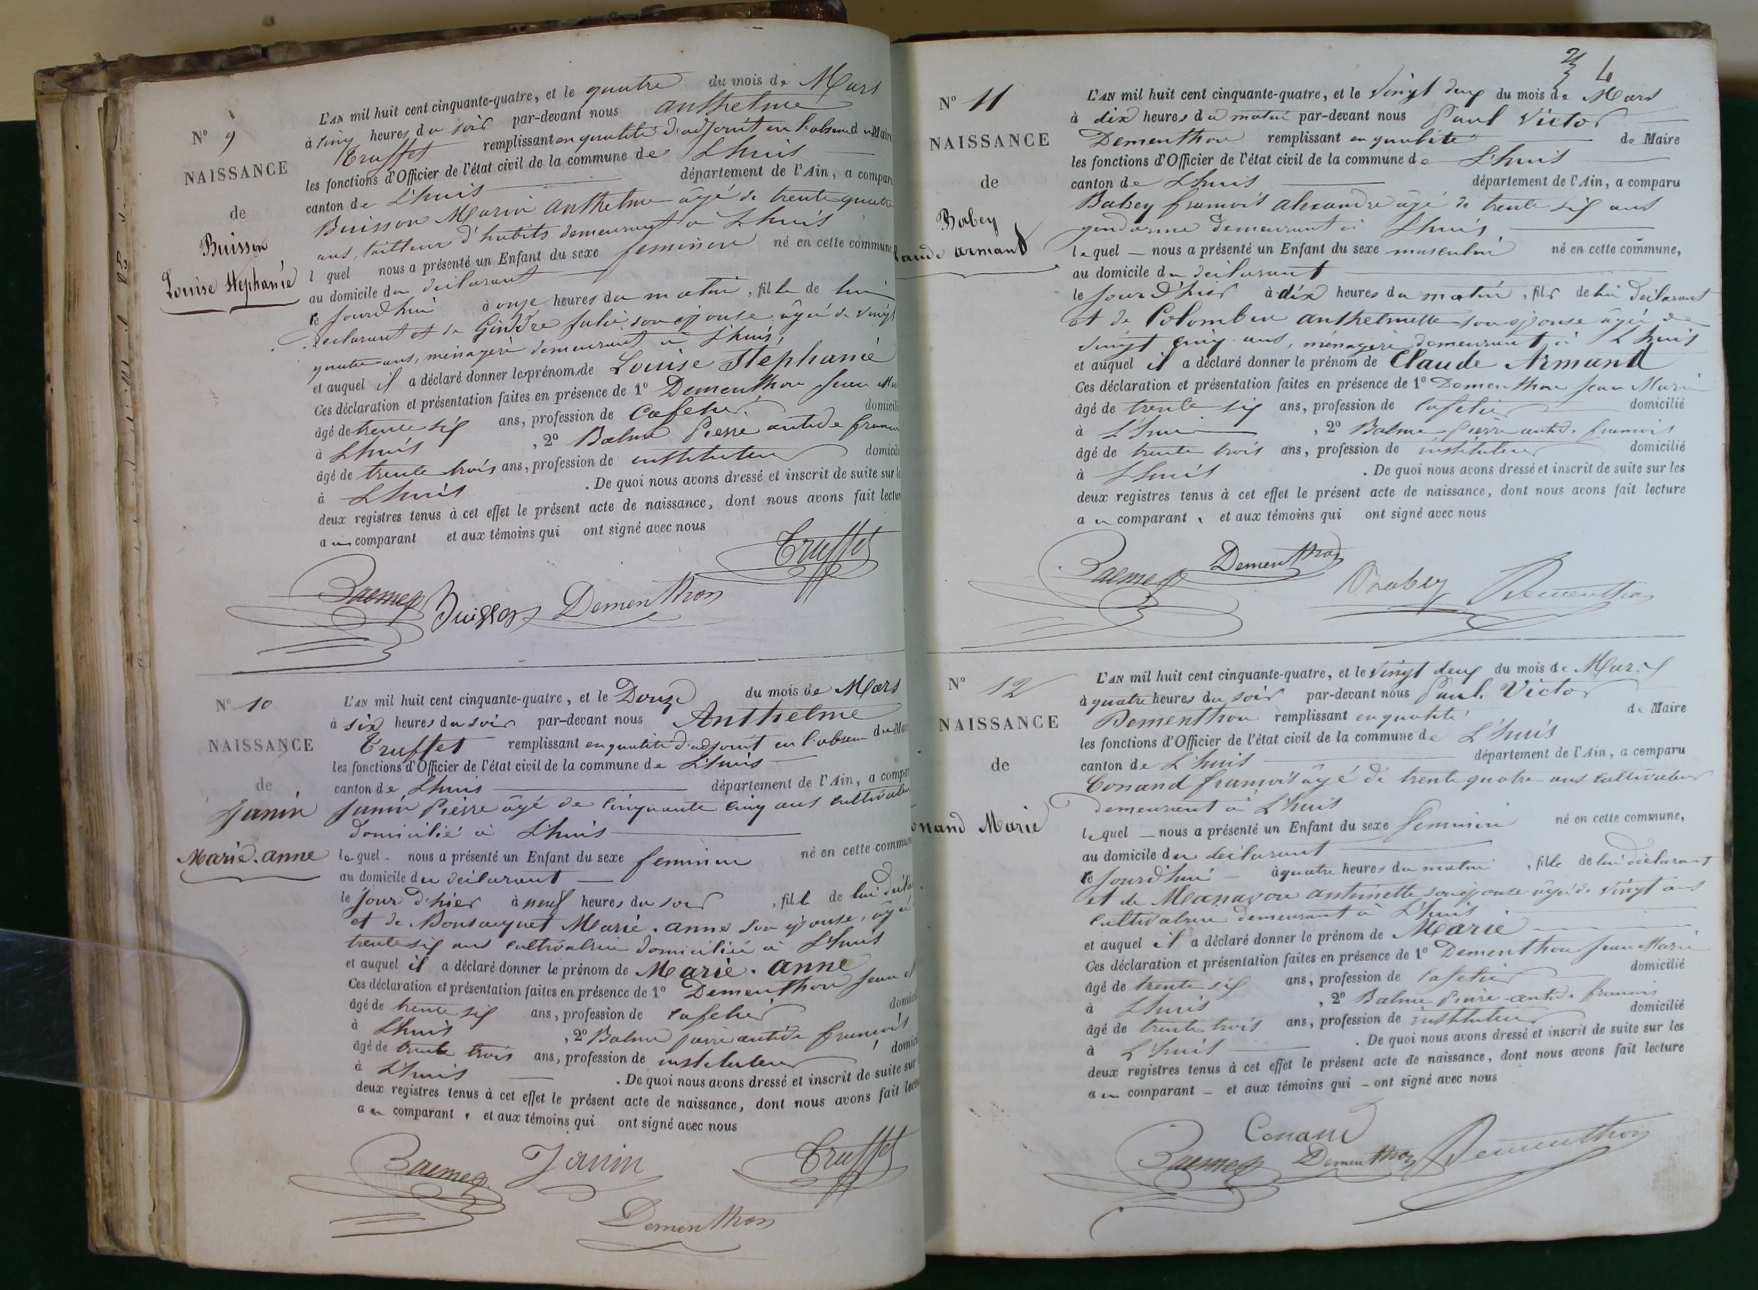 N° 9
NAISSANCE
de
Buisson
Louise Stephanie
L'AN mil huit cent cinquante-quatre, et le quatre du mois de Mars
à cinq heures du soir par-devant nous anthelme
Truffet remplissant en qualité d'adjoint en l'absence du Maire
les fonctions d'Officier de l'état civil de la commune de L'huis
canton de L'huis département de l'Ain, a comparu
Buisson Marin anthelme âgé de trente quatre
ans, tailleur d'habits demeurant à L'huis
l quel nous a présenté un Enfant du sexe feminin né en cette commune
au domicile du déclarant
le jourd'hui à onze heures du matin, fille de lui
déclarant et de Julie son epouse âgée de vingt
quatre ans, ménagère demeurant à L'huis,
et auquel il a déclaré donner les prénom de Louise Stephanie
Ces déclaration et présentation faites en présence de 1° Dementhon Jean Mar
âgé de trente six ans, profession de cafetier domicilié
à L'huis , 2° Balme Pierre antide francois
âgé de trente trois ans, profession de instituteur domicilié
à L'huis . De quoi nous avons dressé et inscrit de suite sur le
deux registres tenus à cet effet le présent acte de naissance, dont nous avons fait lecture
a u comparant et aux témoins qui ont signé avec nous
Truffet
Buisson Dementhon
N° 10
NAISSANCE
de
Janin
Marie-anne
L'AN mil huit cent cinquante-quatre, et le Douze du mois de Mars
à six heures du soir par-devant nous Anthelme
Truffet remplissant en qualité d'adjoint en l'absence du Mai
les fonctions d'Officier de l'état civil de la commune de L'huis
canton de L'huis département de l'Ain, a compar
Janin Pierre âgé de cinquante cinq ans cultivateur
domicilié à L'huis
le quel nous a présenté un Enfant du sexe feminin né en cette commun
au domicile du déclarant
le jour d'hier à neuf heures du soir , fille de lui décla
et de Marie-anne son epouse, âgée
trente six ans cultivatrice domiciliée à L'huis
et auquel il a déclaré donner le prénom de Marie-anne
Ces déclaration et présentation faites en présence de 1° Dementhon Jean M
âgé de trente six ans, profession de cafetier domici
à L'huis , 2° Balme pierre antide francois
âgé de trente trois ans, profession de instituteur domici
à L'huis . De quoi nous avons dressé et inscrit de suite sur
deux registres tenus à cet effet le présent acte de naissance, dont nous avons fait lectu
a u comparant et aux témoins qui ont signé avec nous
Janin Truffet
Dementhon
4
N° 11
NAISSANCE
de
Babey
laude armand
L'AN mil huit cent cinquante-quatre, et le vingt deux du mois de Mars
à dix heures du matin par-devant nous Paul Victor
Dementhon remplissant en qualité de Maire
les fonctions d'Officier de l'état civil de la commune de L'huis
canton de L'huis département de l'Ain, a comparu
Babey francois alexandre âgé de trente six ans
gendarme demeurant à L'huis
le quel nous a présenté un Enfant du sexe masculin né en cette commune,
au domicile du déclarant
le jour d'hier à dix heures du matin, fils de lui déclarant
et de Colombin anthelmette son epouse âgée de
vingt cinq ans, ménagère demeurant à L'huis
et auquel il a déclaré donner le prénom de Claude Armand
Ces déclaration et présentation faites en présence de 1° Dementhon Jean Marie
âgé de trente six ans, profession de cafetier domicilié
à L'huis , 2° Balme pierre antide francois
âgé de trente trois ans, profession de instituteur domicilié
à L'huis . De quoi nous avons dressé et inscrit de suite sur les
deux registres tenus à cet effet le présent acte de naissance, dont nous avons fait lecture
a u comparant et aux témoins qui ont signé avec nous
Dementhon Babey Dementhon
N° 12
NAISSANCE
de
onand Marie
L'AN mil huit cent cinquante-quatre, et le vingt deux du mois de Mars
à quatre heures du soir par-devant nous Paul Victor
Dementhon remplissant en qualité de Maire
les fonctions d'Officier de l'état civil de la commune de L'huis
canton de L'huis département de l'Ain, a comparu
Conand francois âgé de trente quatre ans cultivateur
demeurant à L'huis
le quel nous a présenté un Enfant du sexe feminin né en cette commune,
au domicile du déclarant
le jourd'hui à quatre heures du matin , fille de lui déclarant
et de antoinette son epouse âgée de vingt ans
cultivatrice demeurant à L'huis
et auquel il a déclaré donner le prénom de Marie
Ces déclaration et présentation faites en présence de 1° Dementhon Jean Marie
âgé de trente six ans, profession de cafetier domicilié
à L'huis , 2° Balme pierre antide francois
âgé de trente trois ans, profession de instituteur domicilié
à L'huis . De quoi nous avons dressé et inscrit de suite sur les
deux registres tenus à cet effet le présent acte de naissance, dont nous avons fait lecture
a u comparant et aux témoins qui ont signé avec nous
Conand
Dementhon Dementhon